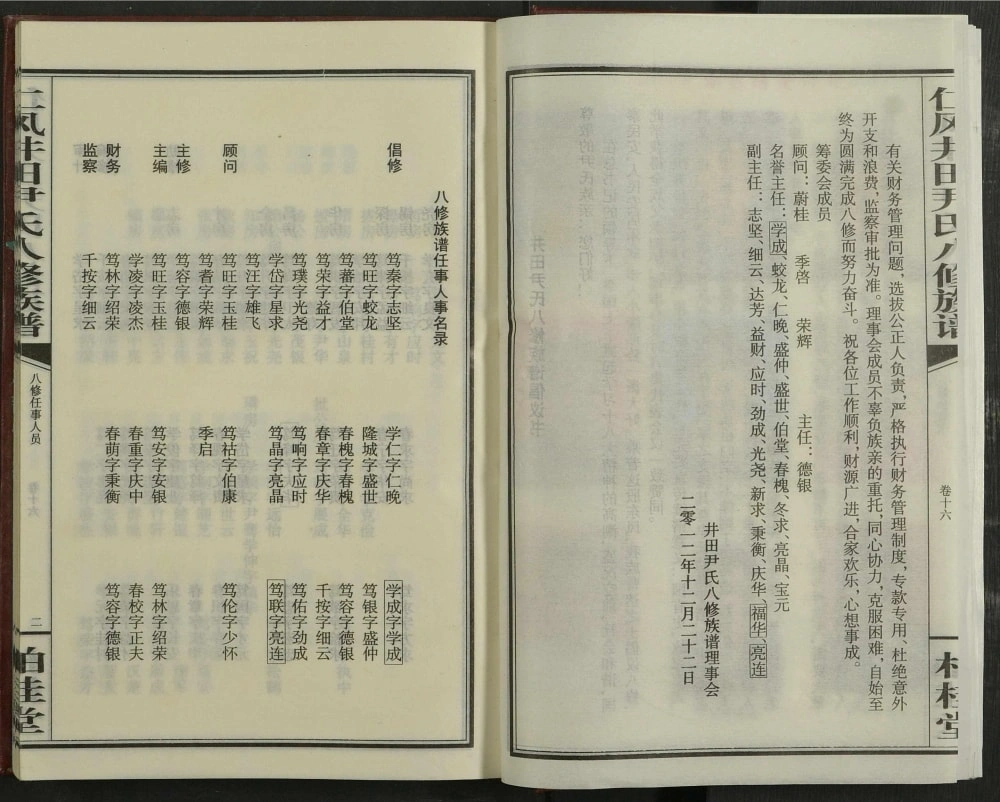 有关财务管理问题，选拔公正人负责，严格执行财务管理制度，专款专用、杜绝意外
开支和浪费，监察审批为准。理事会成员不辜负族亲的重托，同心协力，克服困难，自始至
终为圆满完成八修而努力奋斗。祝各位工作顺利，财源广进，合家欢乐，心想事成。
筹委会成员
顾问：蔚桂 季啓 荣辉 主任：德银
名誉主任：学成、蛟龙、仁晚、盛仲、盛世、伯堂、春槐、冬求、亮晶、宝元
副主任：志坚、细云、达芳、益财、应时、劲成、光尧、新求、秉衡、庆华、福华、亮连
井田尹氏八修族谱理事会
二零一二年十二月二十二日
仁风井田尹氏八修族谱
卷十六
桂堂
八修族谱任事人事名录
倡修 笃秦字志坚 学仁字仁晚 学成字学成
笃旺字蛟龙 隆城字盛世 笃银字盛仲
笃蕃字伯堂 春槐字春槐 笃容字德银
笃荣字益才 春章字庆华 千按字细云
笃璞字光尧 笃响字应时 笃佑字劲成
学岱字星求 笃晶字亮晶 笃联字亮连
笃汪字雄飞
顾问 笃旺字玉桂 笃祜字伯康 笃伦字少怀
笃耆字荣辉 季启
主修 笃容字德银
主编 笃旺字玉桂 笃安字安银 笃林字绍荣
学凌字凌杰 春重字庆中 春校字正夫
财务 笃林字绍荣 春萌字秉衡 笃容字德银
监察 千按字细云
仁风井田尹氏八修族谱
八修任事人员
卷十六
二
柏桂堂